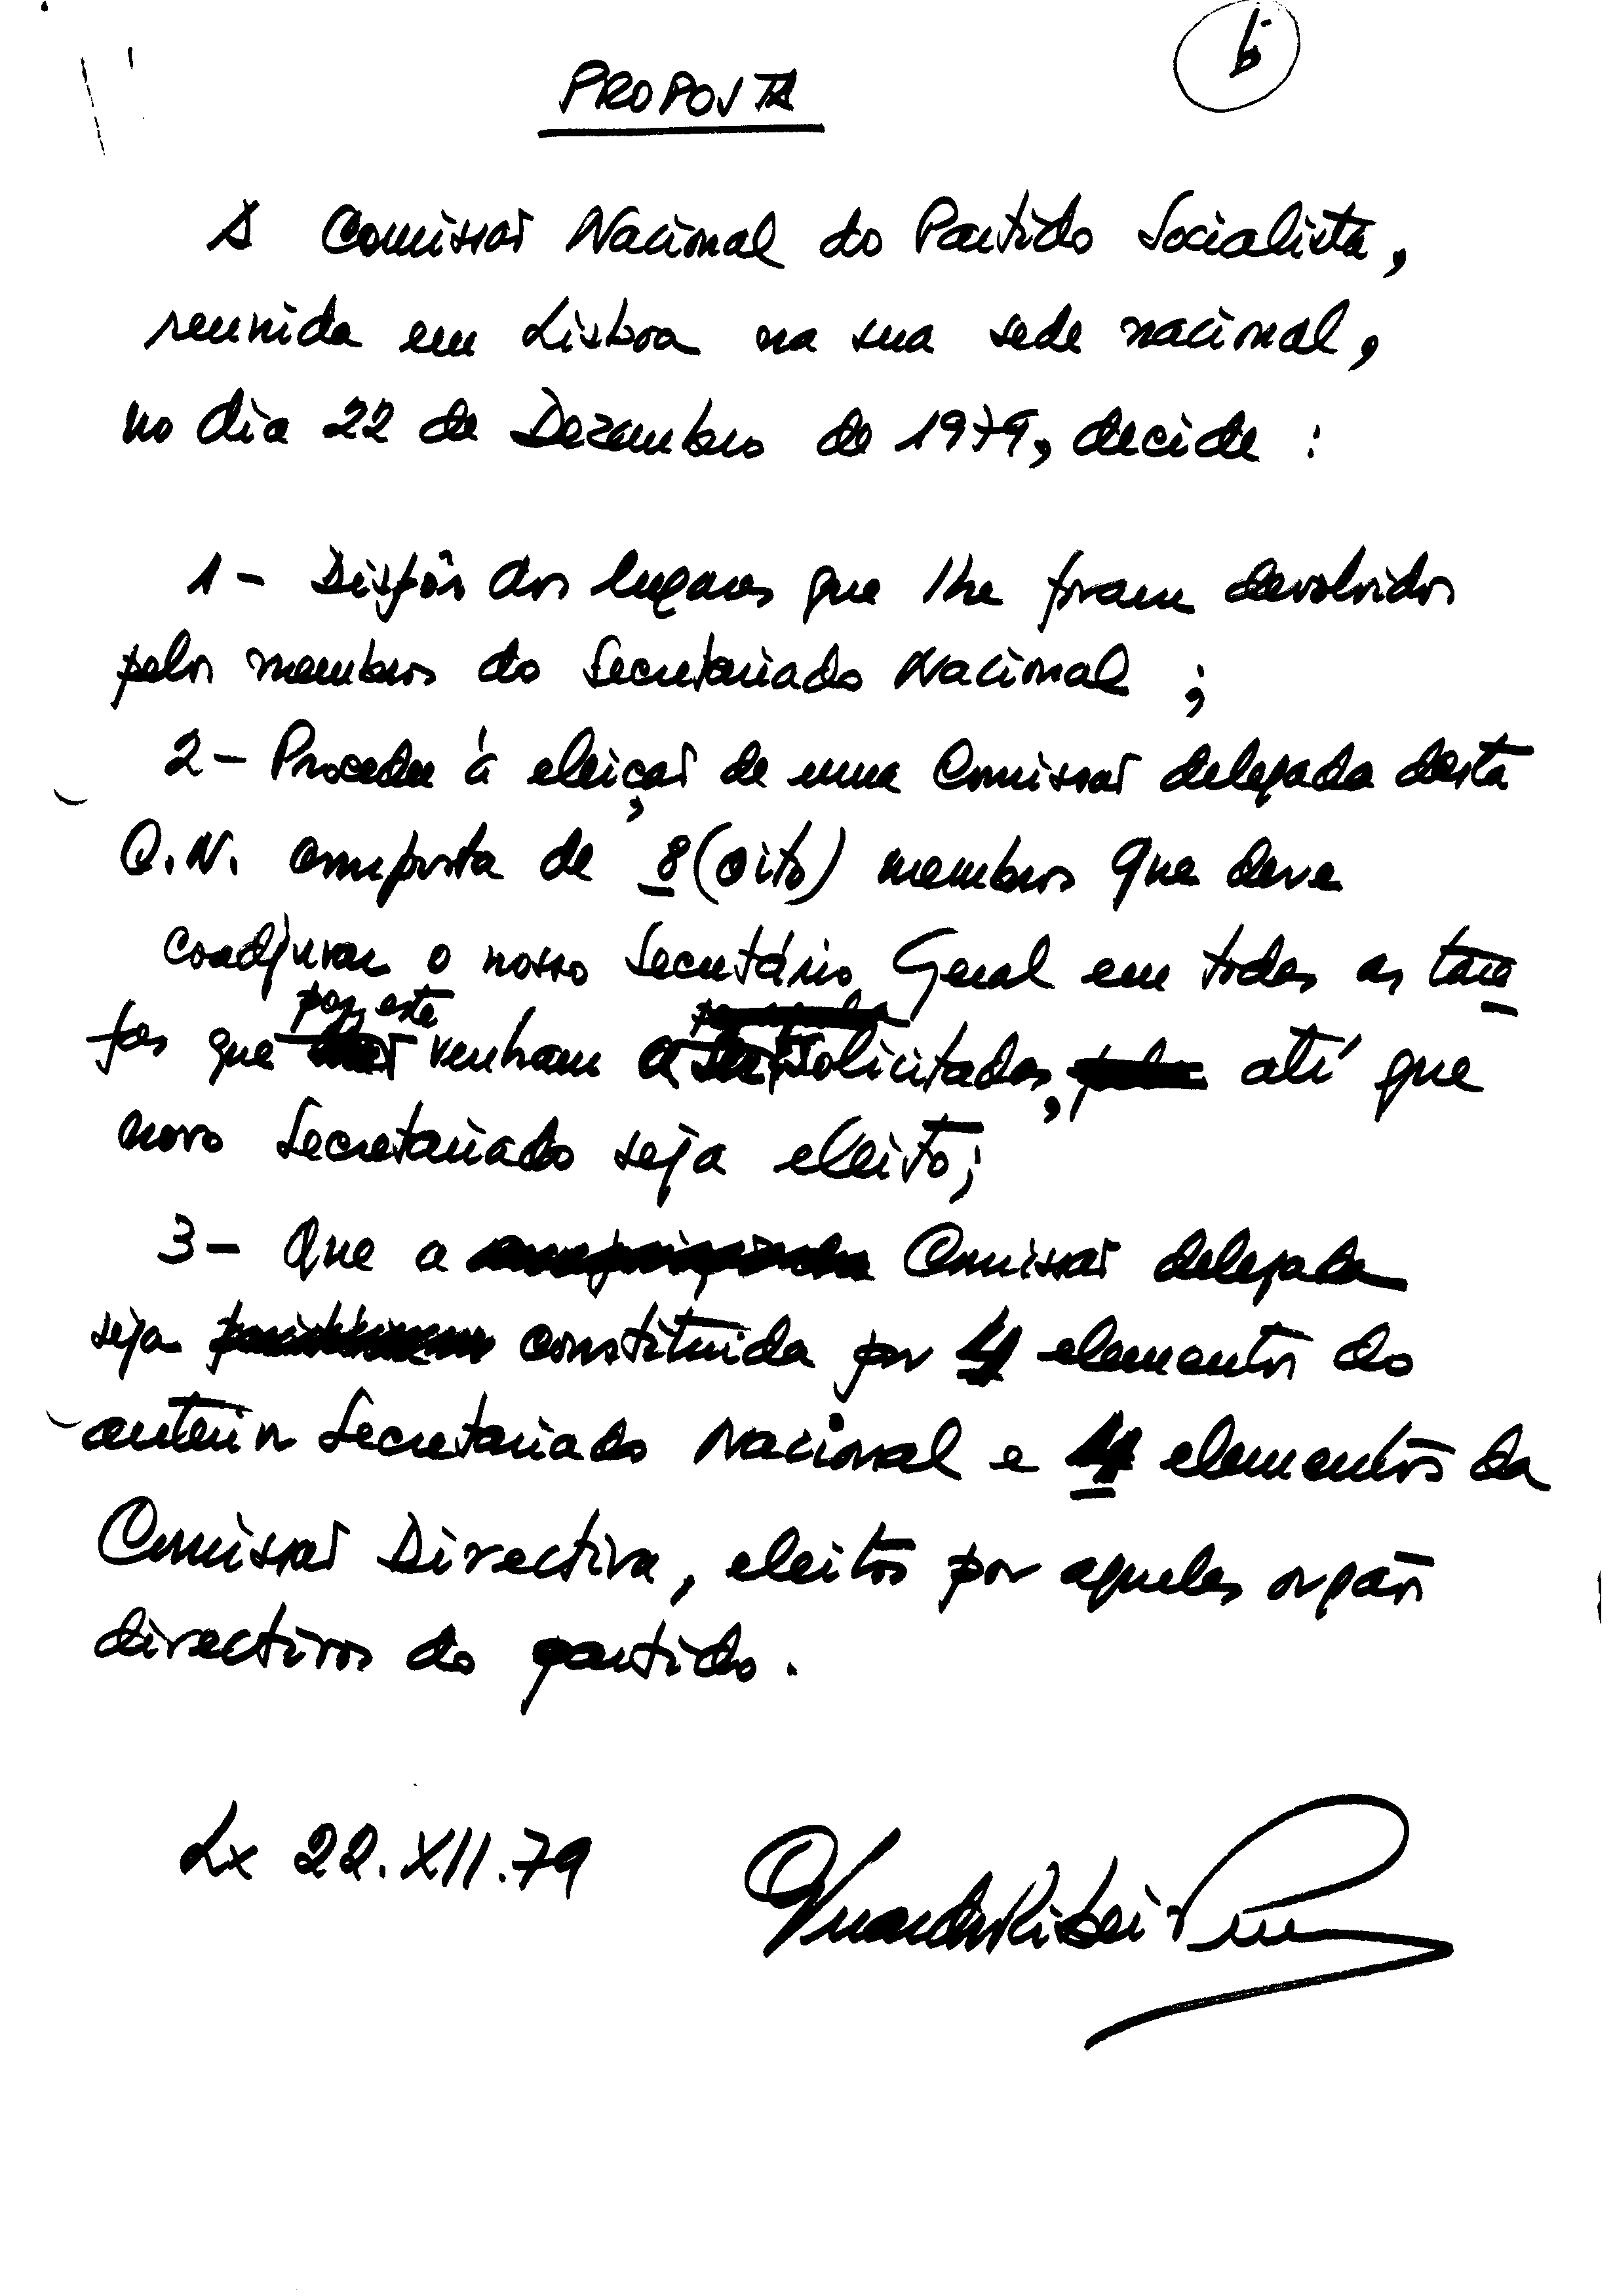 6
PROPOSTA
A Comissão Nacional do Partido Socialista,
reunida em Lisboa na sua sede nacional,
no dia 22 de Dezembro de 1979, decide :
1 - Dispôr dos lugares que lhe foram devolvidos
pelos membros do Secretariado Nacional ;
2 - Proceder à eleição de uma Comissão delegada desta
C.N. composta de 8 (oito) membros que deve
coadjuvar o nosso Secretário Geral em todas as tare
fas que por este venham a ser solicitadas, até que
novo Secretariado seja eleito;
3 - Que a Comissão delegada
seja constituida por 4 elementos do
anterior Secretariado Nacional e 4 elementos da
Comissão Directiva, eleitos por aqueles orgãos
directivos do partido.
Lx 22.XII.79